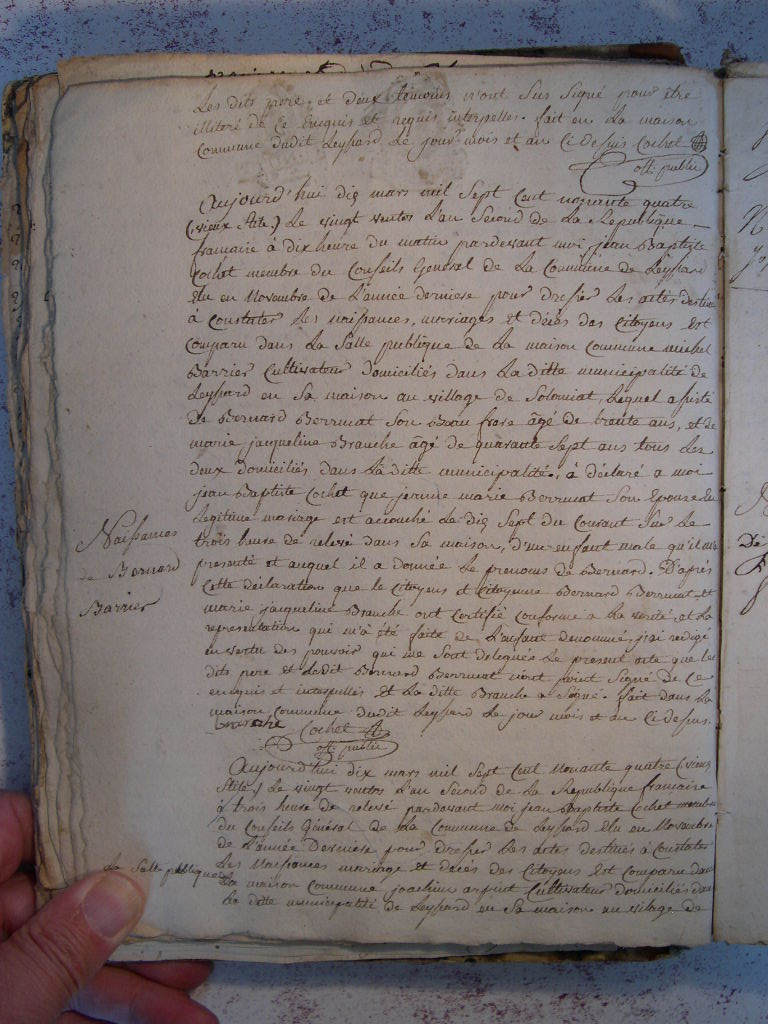 Les dits pere et deux témoins n'ont sus signé pour être
illitéré de ce enequis et requis interpellés. fait en La maison
Commune dudit Leyssard Le jour mois et an Ci dessus Cochet
off. public
Aujourd'hui dix mars mil Sept Cent nonante quatre
(vieux stile) Le vingt ventos L'an Second de La Republique
francaise à dix heure du matin pardevant moi jean Baptiste
Cochet membre du Conseils General de La Commune de Leyssard
Elu en Novembre de L'année derniere pour dresser Les actes destiné
à Constater Les naissances, mariages et décès des Citoyens Est
Comparu dans La Salle publique de La maison Commune michel
Barrier Cultivateur domiciliés dans La ditte municipalité de
Leyssard en Sa maison au village de Solomiat, Lequel assisté
de Bernard Berrmat Son Beau frere âgé de trente ans, et de
marie jacqueline Branche âgé de quarante Sept ans tous Les
deux domiciliés dans La ditte municipalité, à déclaré a moi
jean Baptiste Cochet que jenne marie Berrmat Son Epouse en
Legitime mariage est accouché Le dix Sept du Courant Sur Le
trois heure de relevé dans Sa maison, d'un enfant male qu'il m'a
presenté et auquel il a donnée Le prenoms de Bernard. D'après
Cette déclaration que le Citoyens et Citoyenne Bernard Berrmat et
marie jacqueline Branche ont Certifié Conforme a La verité, et La
representation qui m'a été faite de L'enfant denommé, j'ai redigé
en vertu des pouvoir qui me Sont delegués Le present acte que les
dits pere et Ledit Bernard Berrmat n'ont point Signé de Ce
enequis et interpellés et La ditte Branche a Signé. fait dans La
maison Commune dudit Leyssard Le jour mois et an Ci dessus.
branche Cochet
off. public
Naissances
de Bernard
Barrier
Aujourd'hui dix mars mil Sept Cent Nonante quatre (vieux
Stile) Le vingt ventos L'an Second de La Republique francaise
à trois heure de relevé pardevant moi jean Baptiste Cochet membre
du Conseils Général de La Commune de Leyssard Elu en Novembre
de L'année Derniere pour dresser Les actes destinés à Constater
Les Naissances mariage et décès des Citoyens Est Comparu dans
La Salle publique de La maison Commune joachim arpint Cultivateur domiciliés dans
La ditte municipalité de Leyssard en Sa maison au vilage de